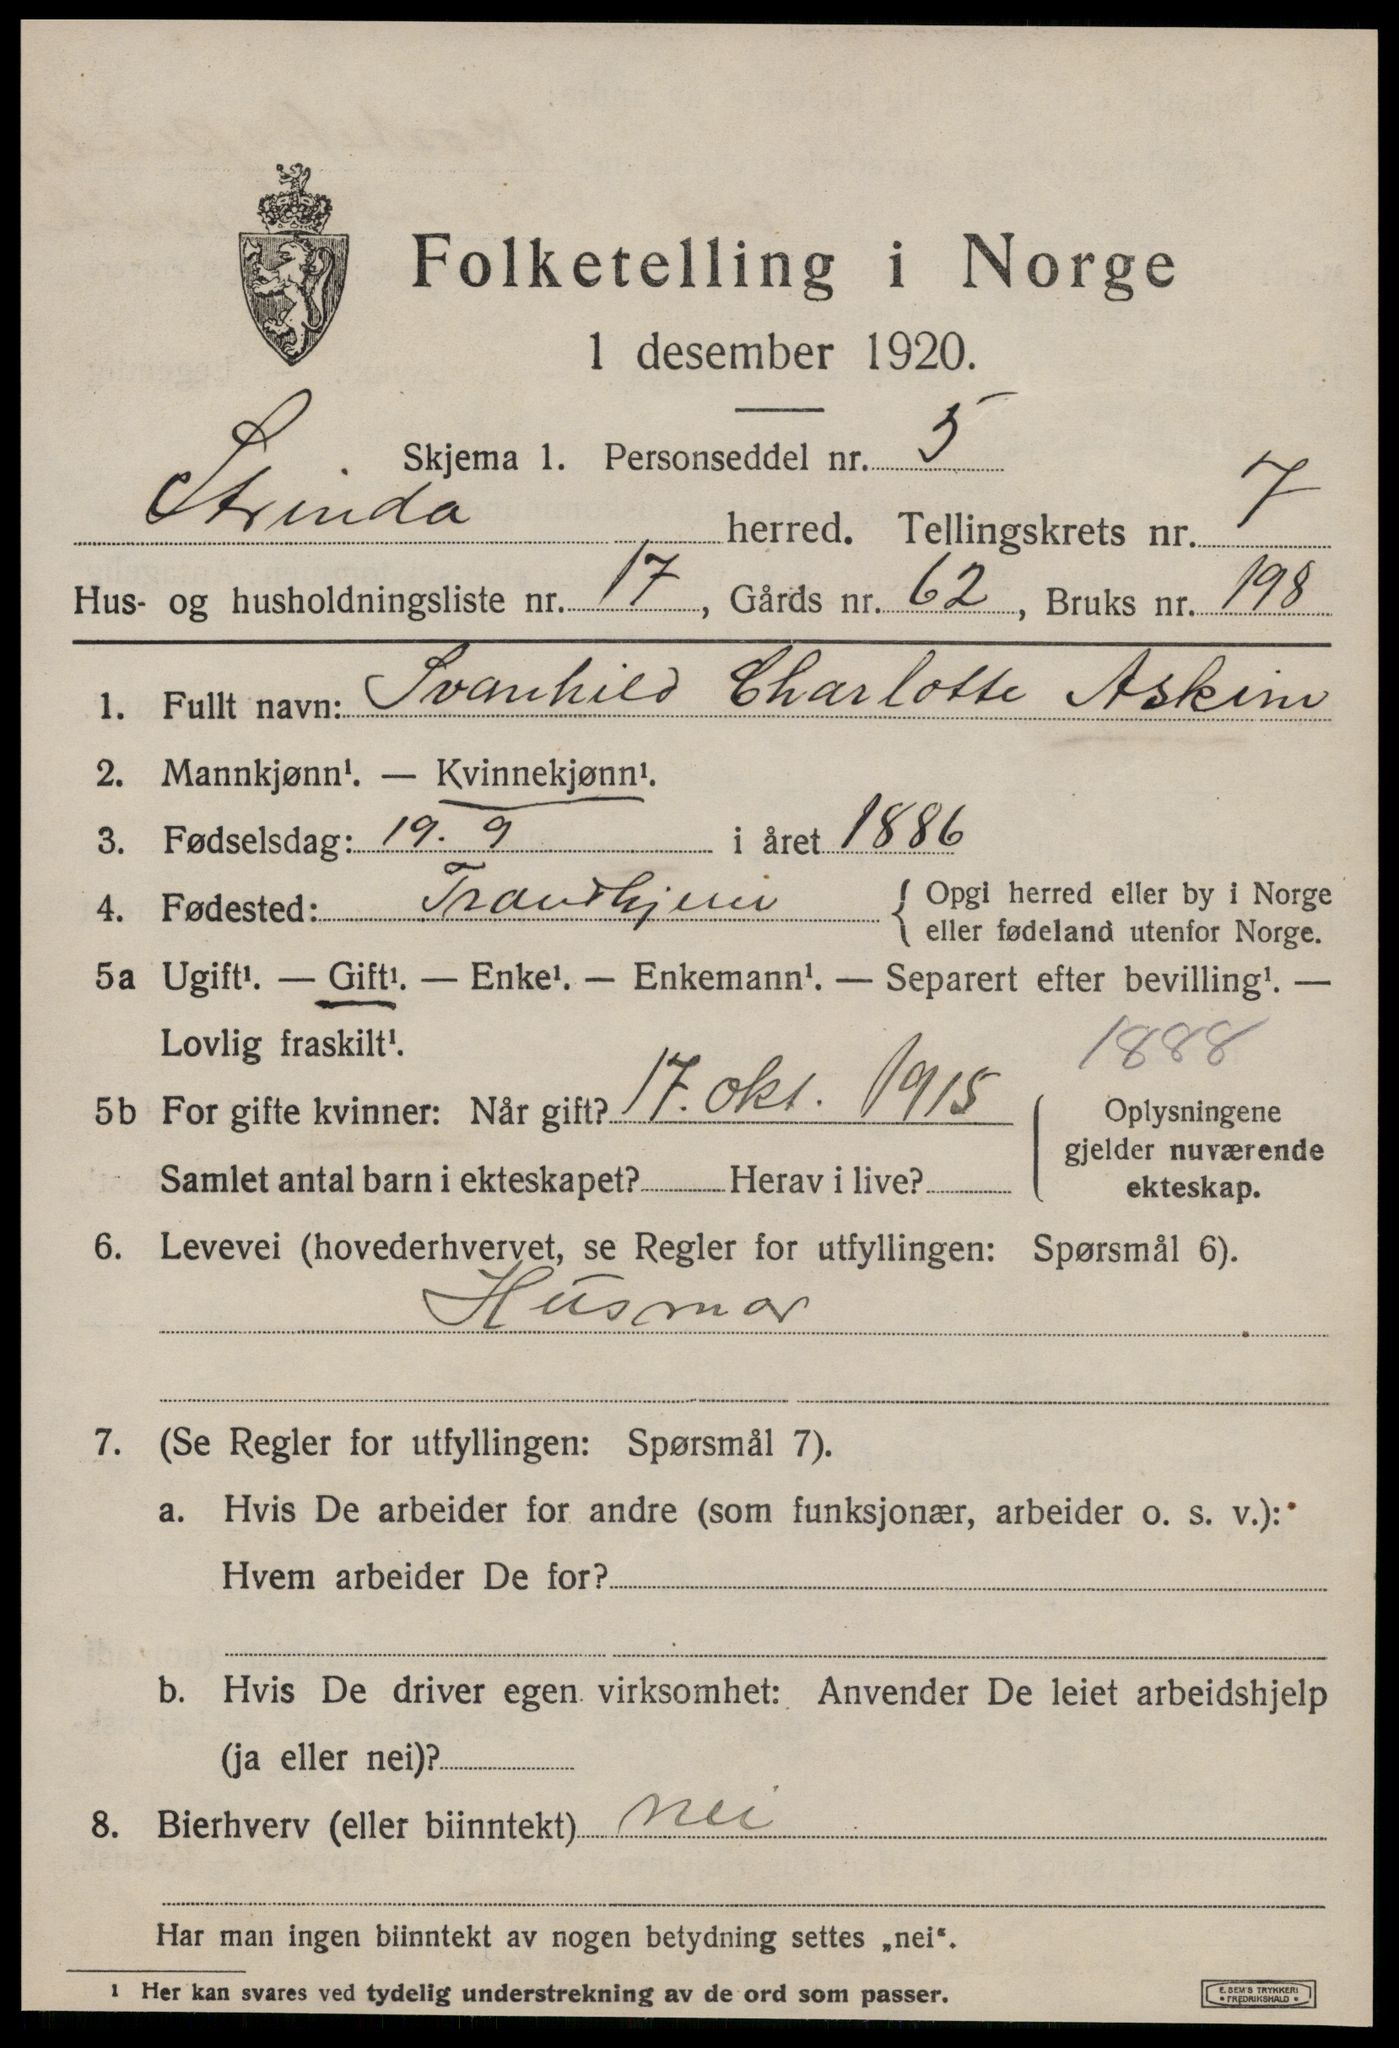 Folketelling i Norge
1 desember 1920.
Skjema 1. Personseddel nr. 5
Strinda herred. Tellingskrets nr. 7
Hus- og husholdningsliste nr. 17, Gårds nr. 62, Bruks nr. 198
1. Fullt navn: Svanhild Charlotte Askim
2. Mannkjønn¹. — Kvinnekjønn¹.
3. Fødselsdag: 19. 9 i året 1886
4. Fødested: Trondhjem { Opgi herred eller by i Norge
eller fødeland utenfor Norge.
5a Ugift¹. — Gift¹. — Enke¹. — Enkemann¹. — Separert efter bevilling¹. —
Lovlig fraskilt¹.
1888
5b For gifte kvinner: Når gift? 17. okt. 1915
Samlet antal barn i ekteskapet? Herav i live?
Oplysningene
gjelder nuværende
ekteskap.
6. Levevei (hovederhvervet, se Regler for utfyllingen: Spørsmål 6).
Husmor
7. (Se Regler for utfyllingen: Spørsmål 7).
a. Hvis De arbeider for andre (som funksjonær, arbeider o. s. v.):
Hvem arbeider De for?
b. Hvis De driver egen virksomhet: Anvender De leiet arbeidshjelp
(ja eller nei)?
8. Bierhverv (eller biinntekt) nei
Har man ingen biinntekt av nogen betydning settes „nei“.
1 Her kan svares ved tydelig understrekning av de ord som passer.
E. SEM'S TRYKKERI
• FREDRIKSHALD •